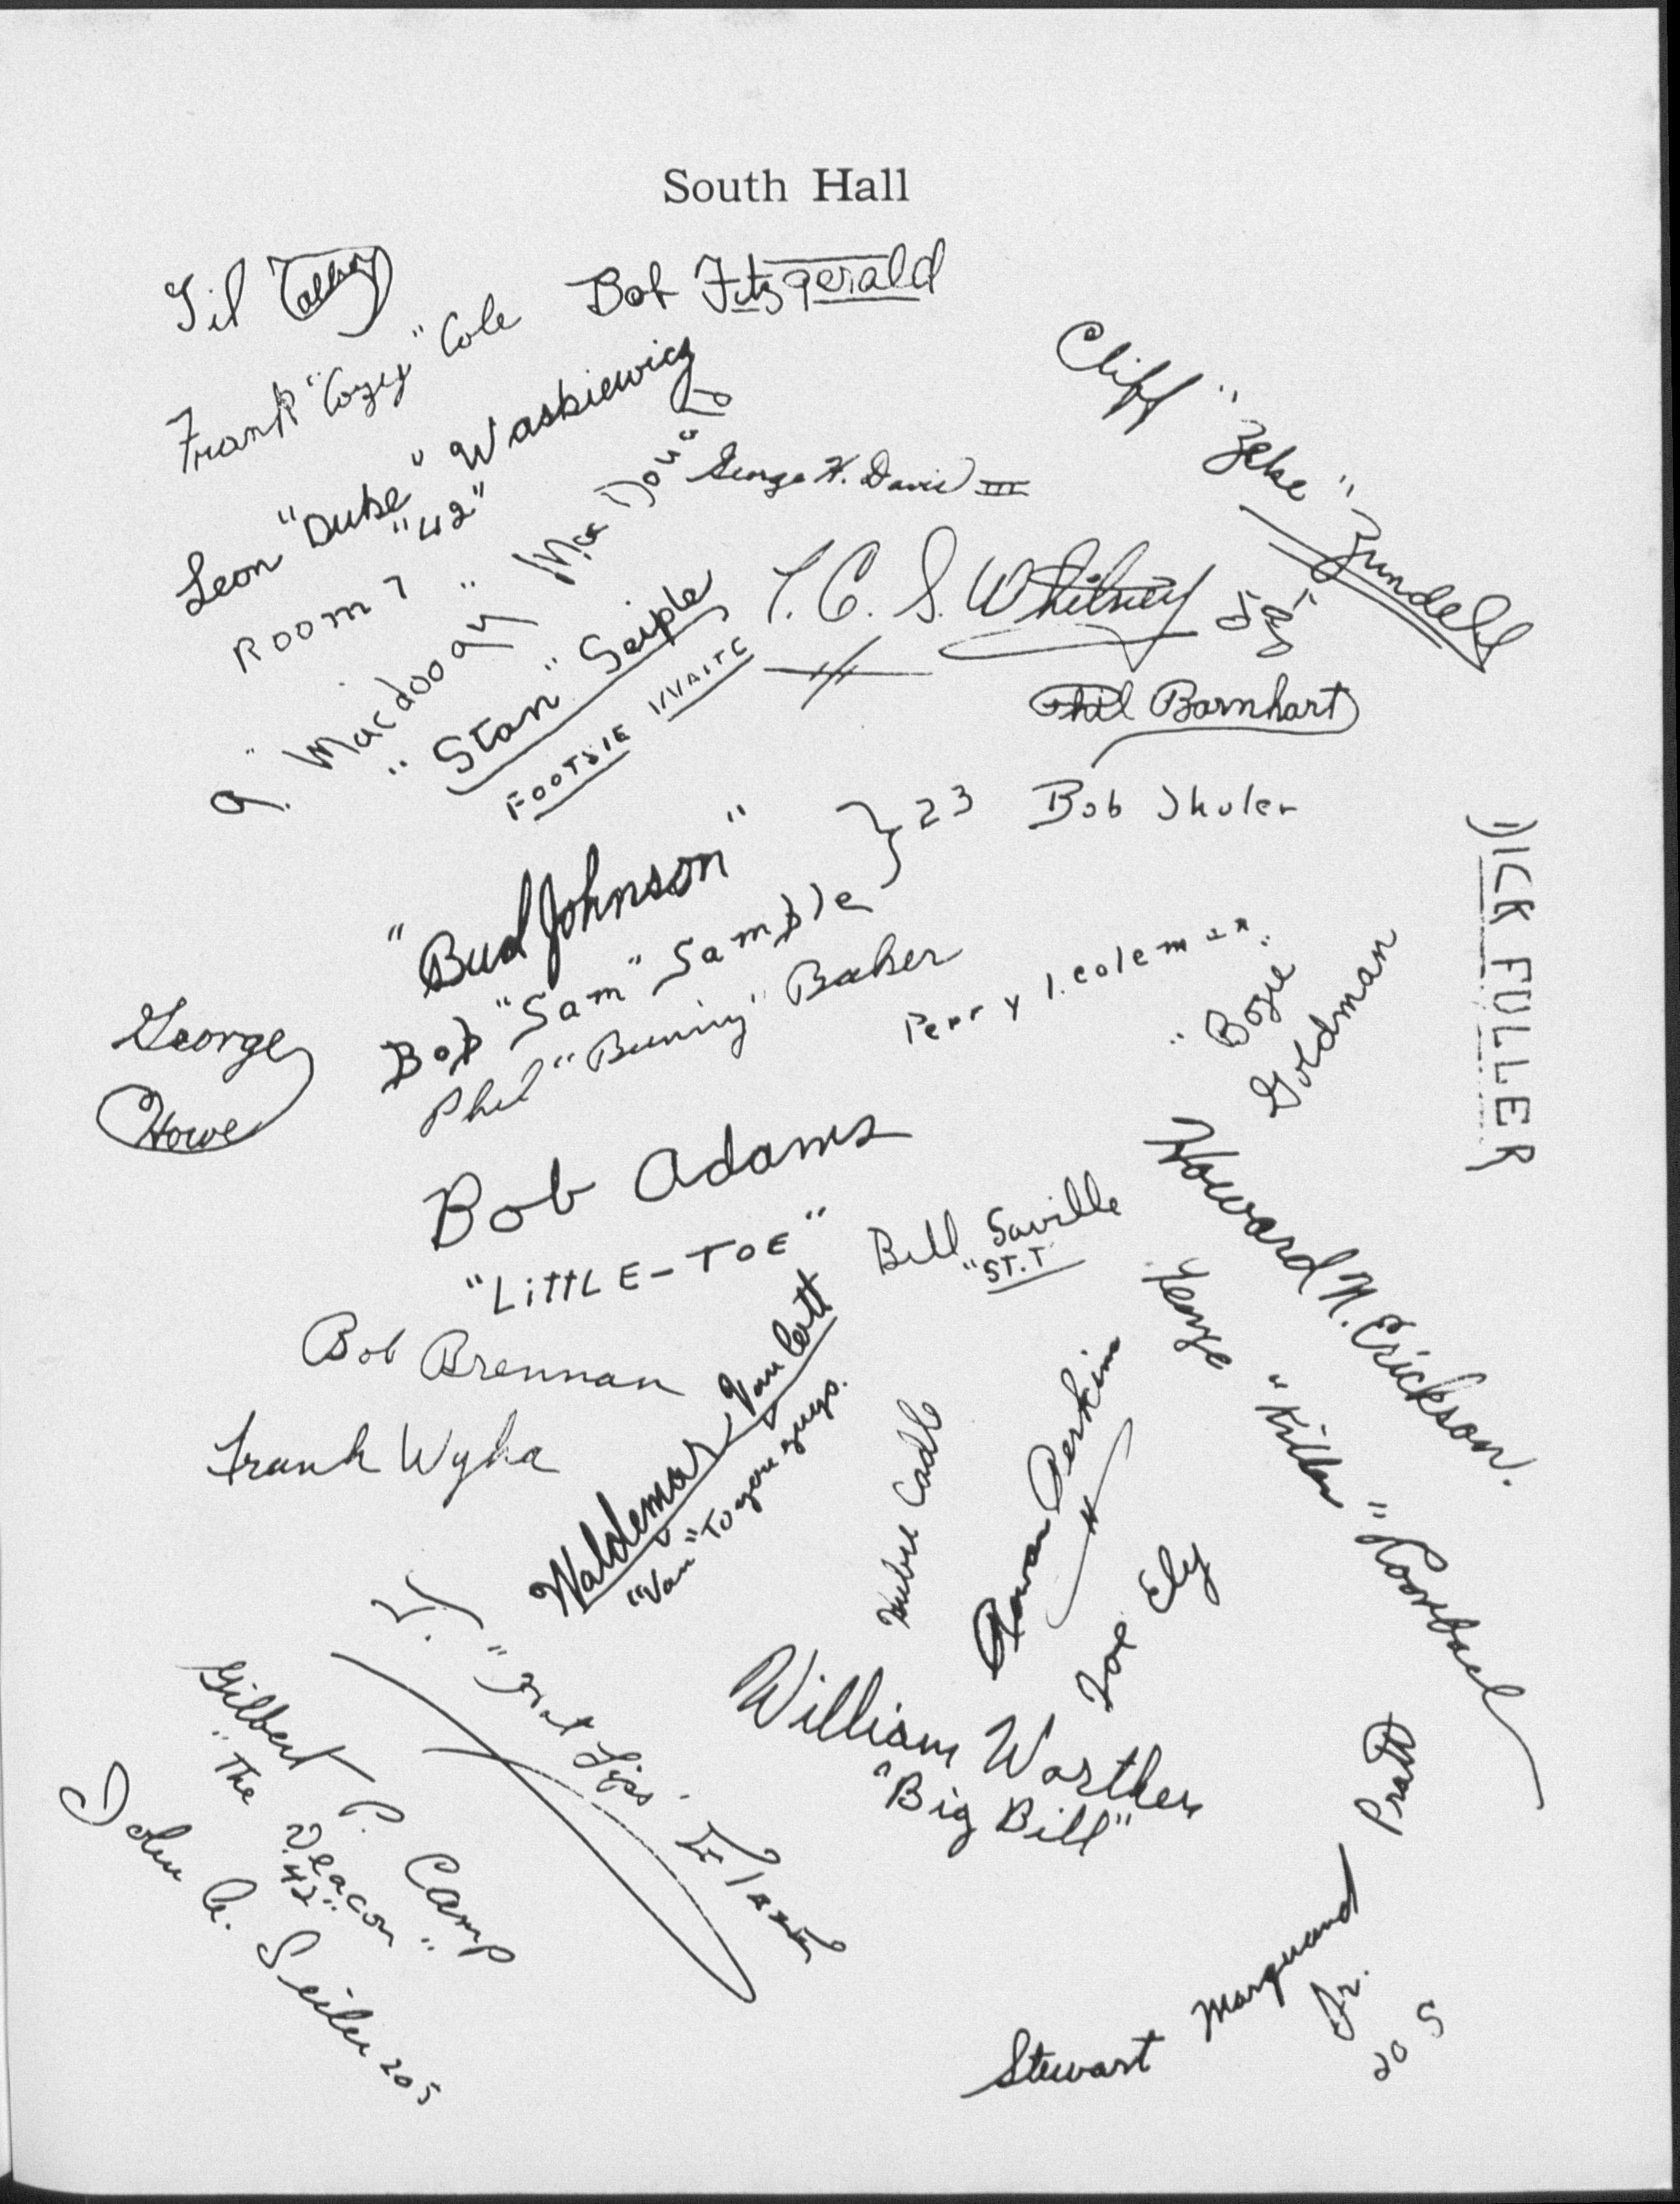 South Hall
Gil
Bob Fitzgerald
Frank "Cozy" Cole
Leon "Duke" Waskiewicz
"42"
Room 7
George H. Davis III
Cliff "Zeke" Zundell
"Macdoogy"
"Stan" Seiple
FOOTSIE WAITE
S. Whitney
Phil Barnhart
"Bud Johnson"
} 23
Bob Shuler
DICK FULLER
Bob "Sam" Sample
Phil "Bunny" Baker
Perry I. Coleman
"Bogie"
Goldman
George
Howe
Bob Adams
"LITTLE-TOE"
Bill Saville
"ST.T"
Howard M. Erickson.
Bob Brennan
George "Killer" Roorbach
Frank Wyka
Waldemar Van Cott
"Van" To you guys.
Perkins
Joe Ely
"Lips"
William Worthen
"Big Bill"
Gilbert P. Camp
"The Deacon"
42
John A. Seiler 205
Stewart Marquand Pratt
Jr.
205